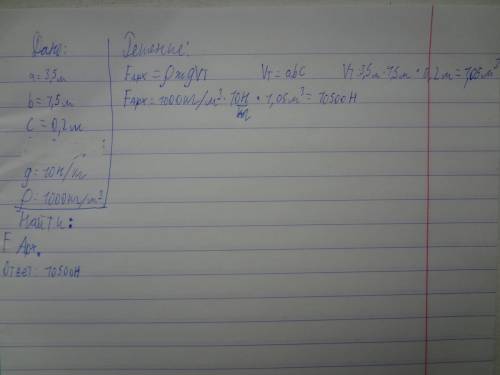 Дано:
a = 3,5 м
b = 1,5 м
c = 0,2 м
g = 10 Н/
ρ = 1000 кг/м³
Найти:
F Арх.
Ответ: 10500Н
Решение:
Fарх = ρж g Vт Vт = abc Vт 3,5 м · 1,5 м · 0,2 м = 1,05 м³
Fарх = 1000 кг/м³ · 10Н/кг · 1,05 м³ = 10500Н